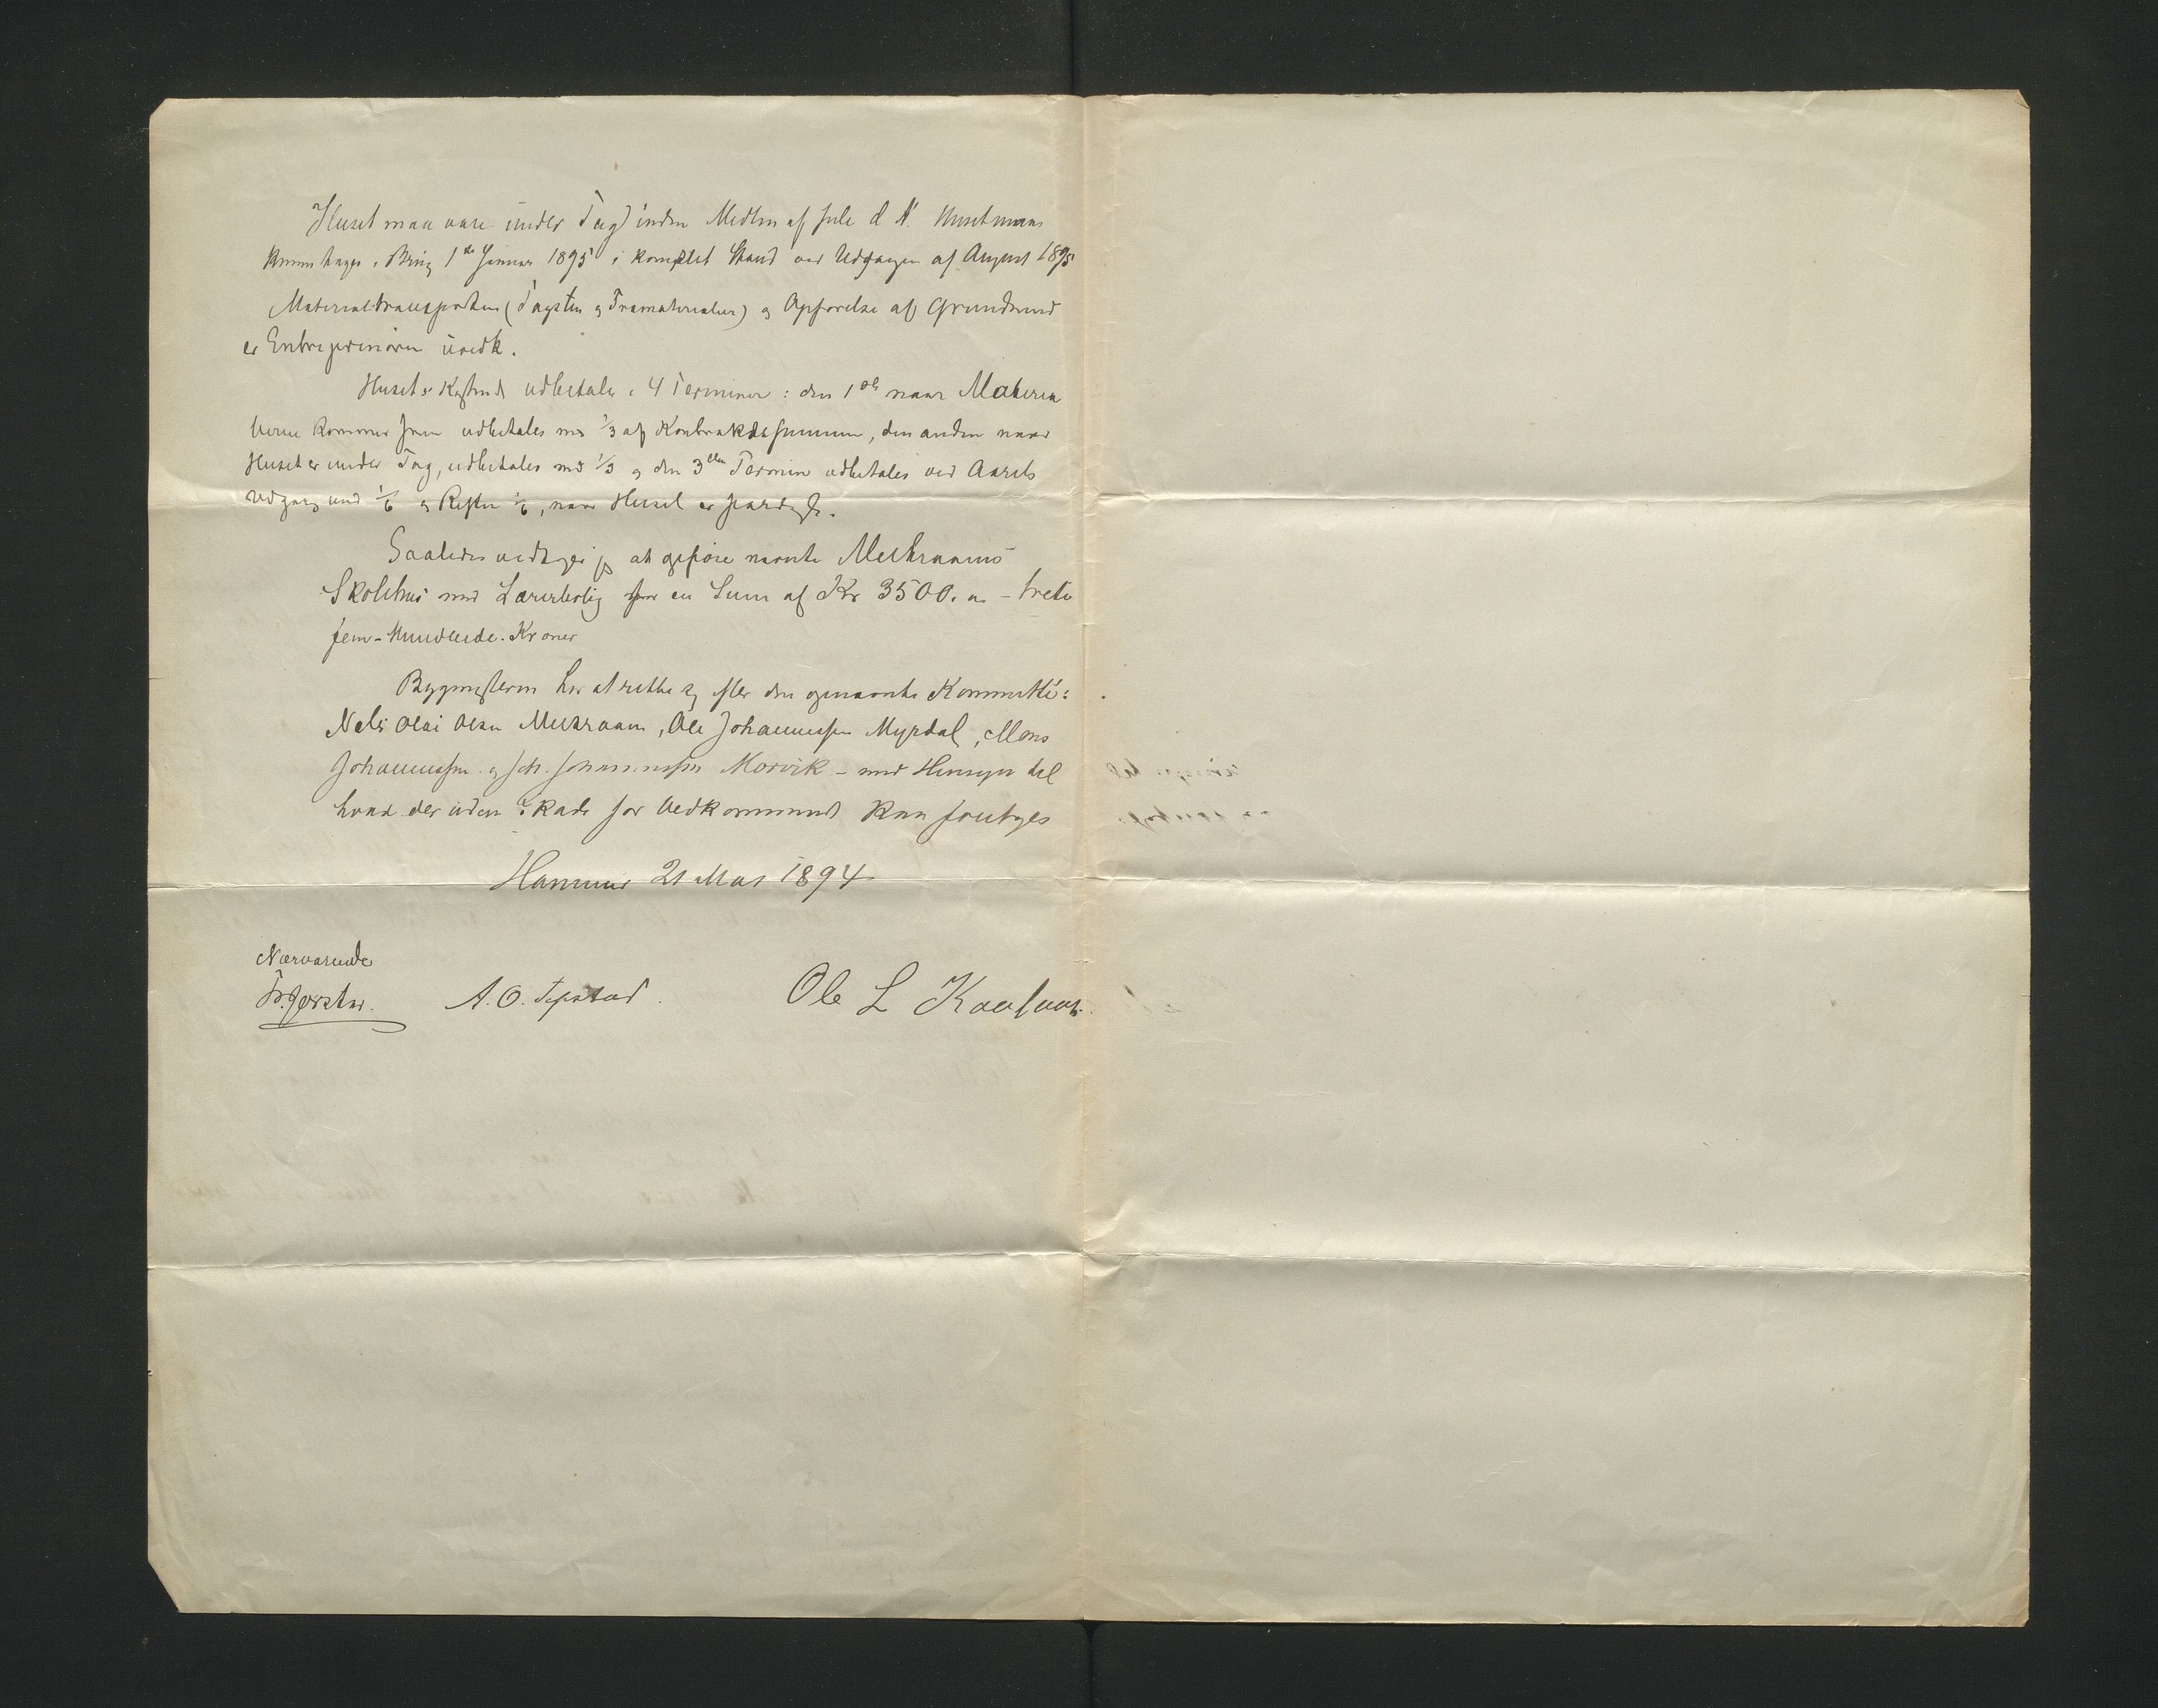 Huset maa være under Tag inden Medten af Jule d. A. Huset maa
kunne tages i Brug 1ste Januar 1895 i komplet Stand ved Udgangen af August 1895
Materialtransporten (Tagsten og Træmaterialier) og Opførelse af Grundmur
er Entreprenøren uvedk.
Husets Kostende udbetales i 4 Terminer: den 1ste naar Materia
lierne kommer frem udbetales med 1/3 af Kontraktssummen, den anden naar
Huset er under Tag, udbetales med 1/3 og den 3die Termin udbetales ved Aarets
Udgang med 1/6 og Resten 1/6, naar Huset er færdigt.
Saaledes vedtager jeg at opføre nævnte Mellraams
Skolehus med Lærerbolig for en Sum af Kr 3500. – tretu
fem-Hundrede. Kroner
Bygmesteren har at rette sig efter den opnævnte Kommitté:
Nels Olai Olsen Mellraam, Ole Johannessen Myrdal, Mons
Johannessen og Joh. Johannessen Morvik – med Hensyn til
hvad der uden Skade for Vedkommende kan foretages
Hammer 21 Mai 1894
Nærværende
A. O. Tepstad
Ole L Kaalaas